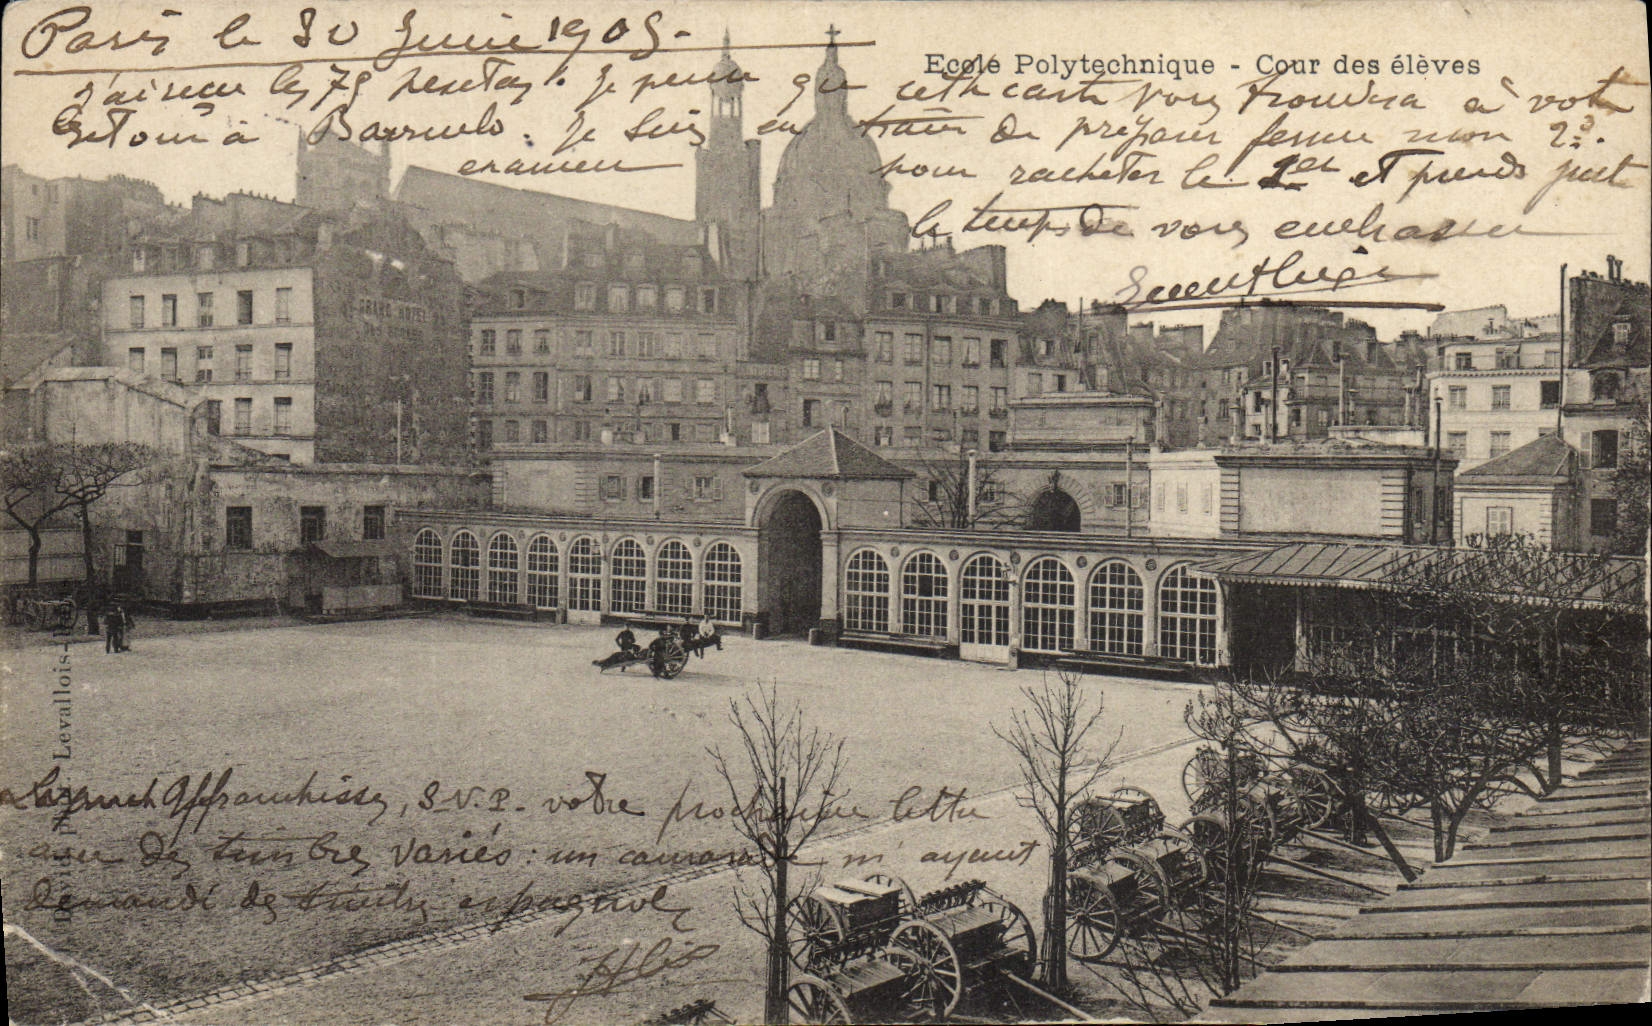 Paris le 30 Juin 1905.
Ecole Polytechnique - Cour des élèves
j'ai reçu les 75 pesetas. Je pense que cette carte vous trouvera à votre
retour à Je suis en train de préparer ferme mon 2e.
examen pour racheter le 1er et prends juste
le temps de vous embrasser
GRAND HOTEL
DES
Affranchissez, S.V.P. votre prochaine lettre
avec des timbres variés : un camarade m'ayant
demandé des timbres espagnols
Levallois-